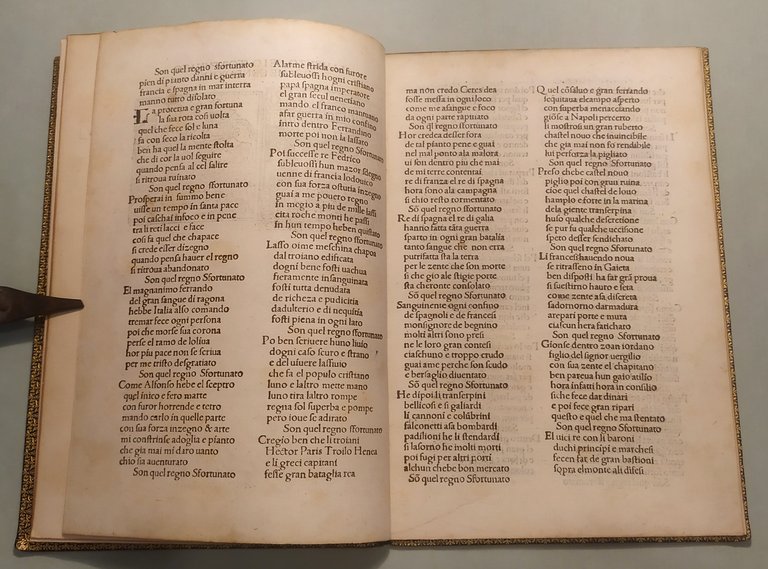 Son quel regno sfortunato
pien di pianto danni e guerra
francia e spagna in mar interra
manno tutto disolato
La potentia e gran fortuna
la sua rota cosi uolta
quel che fece sol e luna
fa con seco la ricolta
ben ha quel la mente stolta
che di cor la uol seguire
quando pensa al cel salire
si ritroua ruinato
Son quel regno sfortunato
Prosperai in summo bene
uisse un tempo in santa pace
poi caschai infoco e in pene
tra li reti lacci e face
cosi fa quel che chapace
si crede esser dizegno
quando pensa hauer el regno
si ritroua abandonato
Son quel regno Sfortunato
El magnanimo ferrando
del gran sangue di ragona
hebbe Italia also comando
tremar fece ogni persona
poi che morse sua corona
perse el ramo de lo liua
hor piu pace non se scriua
per me tristo desgratiato
Son quel regno Sfortunato
Come Alfonso hebe el sceptro
quel unico e fero matte
con furor horrende e tetro
mando carlo in quelle parte
con sua forza inzegno & arte
mi constrinse adoglia e pianto
che gia mai mi daro uanto
chio sia auenturato
Son quel regno Sfortunato
Alarme strida con furore
subleuossi hogni cristiano
papa spagna imperatore
el gran fecul uenesiano
mando el franco mantuano
afar guerra in mio confino
intro dentro Ferrandino
morte poi non la lassato
Son quel regno Sfortunato
Poi successe re Fedrico
subleuossi hun mazor silegno
uenne di francia lodouico
con sua forza ostutia inzegno
guai a me pouero regno
in megio a piu de mille lassi
cita roche monti he passi
in hun tempo heben quistato
Son quel regno sfortunato
Lasso oime meschina chapoa
dal troiano edificata
dogni bene fosti uachua
fieramente insanguinata
fosti tutta denudata
de richeza e pudicitia
dadulterio e di nequisia
fosti piena in ogni lato
Son quel regno Sfortunato
Po ben scriuere huno liuio
dogni caso scuro e strano
e del usuere lassiuio
che fa el populo cristiano
luno e laltro mette mano
luno tira laltro rompe
regna sol superba e pompe
pero ioue se adirato
Son quel regno sfortunato
Cregio ben che li troiani
Hector Paris Troilo Henea
e li greci capitani
fesse gran bataglia rea
ma non credo Ceres dea
fosse messa in ogni loco
come me asangue e foco
da ogni parte rapinato
Son ql regno sfortunato
Hor credea desser fora
de tal pianto pene e guai
nel mal ponto ala malora
ui fou dentro piu che mai
di me terre contemrai
re di franza el re di spagna
hora sono ala campagna
si chio resto tormentato
Sō quel regno sfortunato
Re di spagna el re di galia
hanno fatta tāta guerra
sparto in ogni gran batalia
tanto sangue che non erra
putrifatta sta la terra
per le zente che son morte
si che gio ale stigie porte
sta cheronte consolato
Sō quel regno Sfortunato
Sanguinente ogni confino
de spagnoli e de francesi
monsignore de begnino
molti altri sono presi
ne le loro gran contesi
ciaschuno e troppo crudo
guai ame perche son scudo
e bersaglio diuentato
Sō quel regno Sfortunato
He dipoi li transerpini
bellicosi e si galiardi
li cannoni e colubrini
falconetti asa bombardi
padilioni he li stendardi
si lasorno he molti morti
poi fugi per altri porti
alchun chebe bon mercato
Sō quel regno Sfortunato
Quel cōsaluo e gran ferrando
sequitaua elcampo asperto
con superba menacciando
giōse a Napoli percerto
li mostrosi un gran ruberto
chastel nouo che inuincibile
che gia mai non fo rendabile
lui perforza la pigliato
Son quel regno Sfortunato
Preso chebe castel nouo
piglio poi con gran ruina
cioe quel chastel de louo
hamplo e forte in la marina
dela giente transerpina
huso qualche descretione
se pur fu qualche uccisione
spero desser sendichato
Son quel regno Sfortunato
Li francesi hauendo noua
se ritrasseno in Gaieta
ben disposti ha far grā proua
si susterino hauro e seta
come zente asa discreta
sadornorno darmadura
arepari porte e mura
ciascun hera fatichato
Son quel regno Sfortunato
Gionse dentro zoan iordano
figlio del signor uergilio
con sua zente el chapitano
ben pareua hun gaio atilio
hora infatti hora in consilio
si che fece dar dinari
e poi fece gran ripari
questo e quel che ma stentato
Son quel regno Sfortunato
El uici re con li baroni
duchi principi e marchesi
fecen far de gran bastioni
sopra elmonte ali difesi